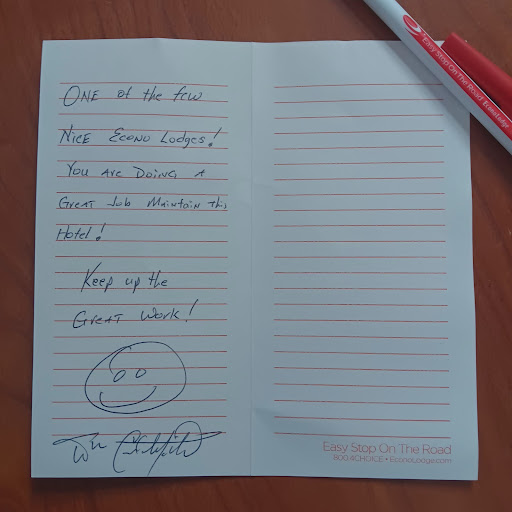 ONE of the few
NICE ECONO Lodges!
You ARE DOING A
GREAT Job MAINTAIN this
Hotel!
Keep up the
GREAT WORK!
Easy Stop On The Road
800.4CHOICE • EconoLodge.com
Easy Stop On The Road Econolodge